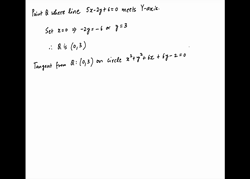 Point Q where line 5x-2y+6=0 meets Y-axis
Set x=0 ⇒ -2y=-6 or y=3
∴ Q is (0,3)
Tangent from Q:(0,3) on circle x²+y²+6x+6y-2=0